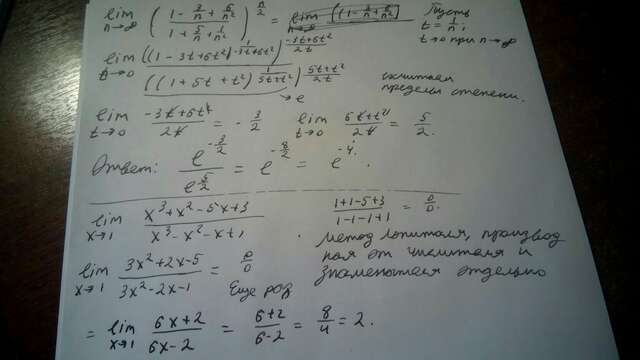 lim n→∞ ((1 - 3/n + 6/n²)/(1 + 5/n + 1/n²))^(n/2) = lim n→∞ Пусть t = 1/n, t→0 при n→∞
lim t→0 ((1 - 3t + 6t²)^(1/(-3t+6t²)))^((-3t+6t²)/2t) / ((1 + 5t + t²)^(1/(5t+t²)))^((5t+t²)/2t) → e считаем пределы степени.
lim t→0 (-3t+6t²)/2t = -3/2 lim t→0 (5t+t²)/2t = 5/2.
Ответ: e^(-3/2)/e^(5/2) = e^(-8/2) = e^(-4).
lim x→1 (x³+x²-5x+3)/(x³-x²-x+1) (1+1-5+3)/(1-1-1+1) = 0/0.
метод лопиталя, производ
ная от числителя и
знаменателя отдельно
lim x→1 (3x²+2x-5)/(3x²-2x-1) = 0/0 Еще раз
= lim x→1 (6x+2)/(6x-2) = (6+2)/(6-2) = 8/4 = 2.